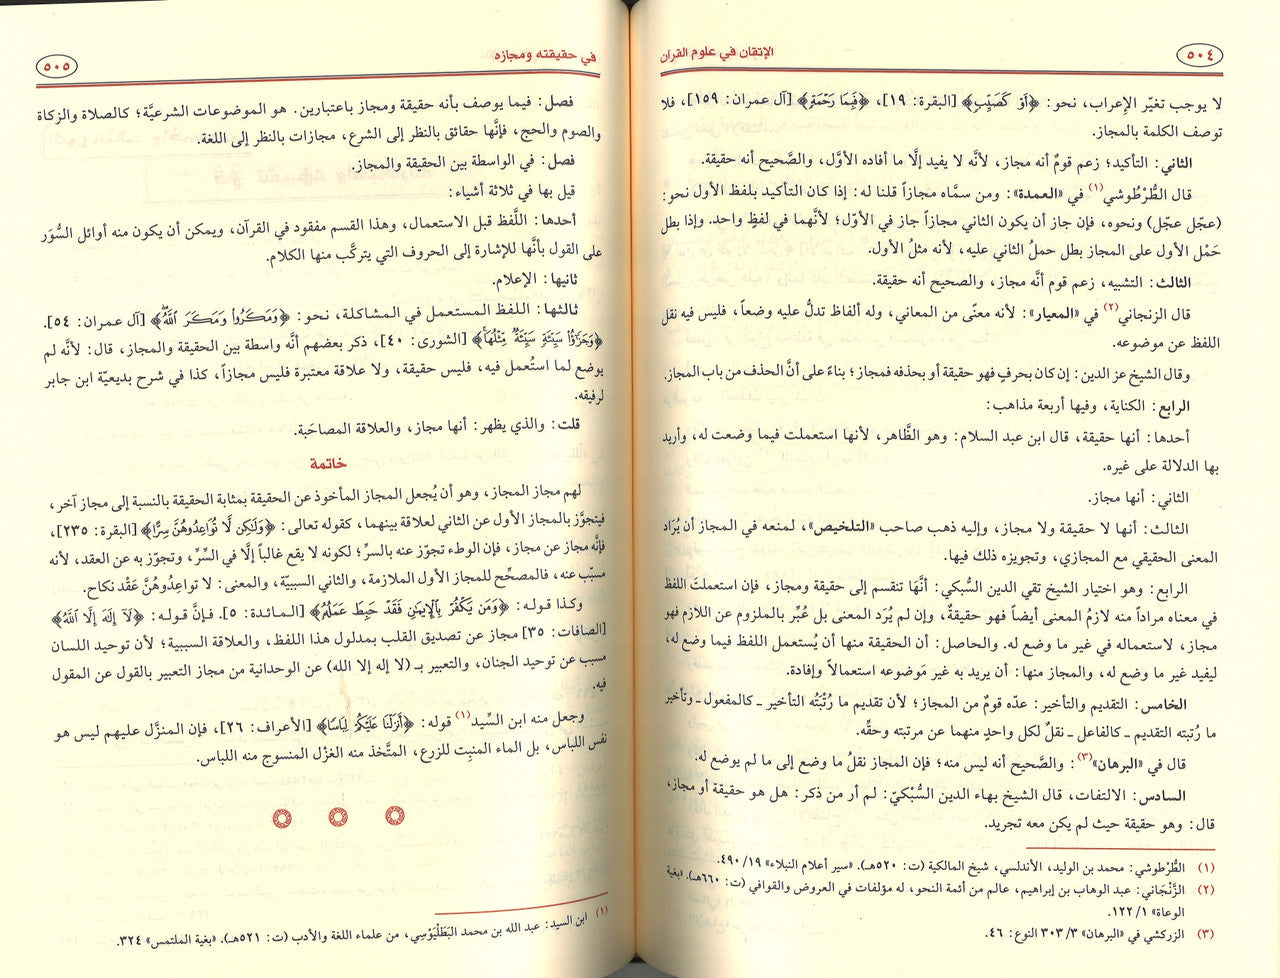 ٥٠٤
الإتقان في علوم القرآن
لا يوجب تغيّر الإعراب، نحو: ﴿أَوْ كَصَيِّبٍ﴾ [البقرة: ١٩]، ﴿فَبِمَا رَحْمَةٍ﴾ [آل عمران: ١٥٩]، فلا
توصف الكلمة بالمجاز.
الثاني: التأكيد؛ زعم قومٌ أنه مجاز، لأنَّه لا يفيد إلَّا ما أفاده الأوَّل، والصَّحيح أنه حقيقة.
قال الطُّرْطُوشي(١) في «العمدة»: ومن سمَّاه مجازاً قلنا له: إذا كان التأكيد بلفظ الأول نحو:
(عجِّل عجِّل) ونحوه، فإن جاز أن يكون الثاني مجازاً جاز في الأوّل؛ لأنَّهما في لفظٍ واحد. وإذا بطل
حَمْل الأول على المجاز بطل حملُ الثاني عليه، لأنه مثلُ الأول.
الثالث: التشبيه، زعم قوم أنَّه مجاز، والصحيح أنه حقيقة.
قال الزنجاني(٢) في «المعيار»: لأنه معنًى من المعاني، وله ألفاظ تدلُّ عليه وضعاً، فليس فيه نقل
اللفظ عن موضوعه.
وقال الشيخ عز الدين: إن كان بحرفٍ فهو حقيقة أو بحذفه فمجاز؛ بناءً على أنَّ الحذف من باب المجاز.
الرابع: الكناية، وفيها أربعة مذاهب:
أحدها: أنها حقيقة، قال ابن عبد السلام: وهو الظَّاهر، لأنها استعملت فيما وضعت له، وأريد
بها الدلالة على غيره.
الثاني: أنها مجاز.
الثالث: أنها لا حقيقة ولا مجاز، وإليه ذهب صاحب «التلخيص»، لمنعه في المجاز أن يُرَاد
المعنى الحقيقي مع المجازي، وتجويزه ذلك فيها.
الرابع: وهو اختيار الشيخ تقي الدين السُّبكي: أنَّهَا تنقسم إلى حقيقة ومجاز، فإن استعملتَ اللفظ
في معناه مراداً منه لازمُ المعنى أيضاً فهو حقيقةٌ، وإن لم يُرَد المعنى بل عُبِّر بالملزوم عن اللازم فهو
مجاز، لاستعماله في غير ما وضع له. والحاصل: أن الحقيقة منها أن يُستعمل اللفظ فيما وضع له،
ليفيد غير ما وضع له، والمجاز منها: أن يريد به غير مَوضوعه استعمالاً وإفادة.
الخامس: التقديم والتأخير: عدّه قومٌ من المجاز؛ لأن تقديم ما رُتْبَتُه التأخير ـ كالمفعول ـ وتأخير
ما رُتبته التقديم ـ كالفاعل ـ نقلٌ لكل واحدٍ منهما عن مرتبته وحقِّه.
قال في «البرهان»(٣): والصَّحيح أنه ليس منه؛ فإن المجاز نقلُ ما وضع إلى ما لم يوضع له.
السادس: الالتفات، قال الشيخ بهاء الدين السُّبْكيّ: لم أر من ذكر: هل هو حقيقة أو مجاز،
قال: وهو حقيقة حيث لم يكن معه تجريد.
(١) الطُّرطوشي: محمد بن الوليد، الأندلسي، شيخ المالكية (ت: ٥٢٠هـ). «سير أعلام النبلاء» ١٩/ ٤٩٠.
(٢) الزَّنْجَاني: عبد الوهاب بن إبراهيم، عالم من أئمة النحو، له مؤلفات في العروض والقوافي (ت: ٦٦٠هـ). «بغية
الوعاة» ١/ ١٢٢.
(٣) الزركشي في «البرهان» ٣/ ٣٠٣ النوع: ٤٦.
في حقيقته ومجازه
٥٠٥
فصل: فيما يوصف بأنه حقيقة ومجاز باعتبارين. هو الموضوعات الشرعيَّة؛ كالصلاة والزكاة
والصوم والحج، فإنَّها حقائق بالنظر إلى الشرع، مجازات بالنظر إلى اللغة.
فصل: في الواسطة بين الحقيقة والمجاز.
قيل بها في ثلاثة أشياء:
أحدها: اللَّفظ قبل الاستعمال، وهذا القسم مفقود في القرآن، ويمكن أن يكون منه أوائل السُّوَر
على القول بأنَّها للإشارة إلى الحروف التي يتركَّب منها الكلام.
ثانيها: الإعلام.
ثالثها: اللفظ المستعمل في المشاكلة، نحو: ﴿وَمَكَرُوا۟ وَمَكَرَ ٱللَّهُ﴾ [آل عمران: ٥٤].
﴿وَجَزَٰٓؤُا۟ سَيِّئَةٍ سَيِّئَةٌ مِّثْلُهَا﴾ [الشورى: ٤٠]، ذكر بعضهم أنَّه واسطة بين الحقيقة والمجاز، قال: لأنه لم
يوضع لما استُعمل فيه، فليس حقيقة، ولا علاقة معتبرة فليس مجازاً، كذا في شرح بديعيّة ابن جابر
لرفيقه.
قلت: والذي يظهر: أنها مجاز، والعلاقة المصاحَبة.
خاتمة
لهم مجاز المجاز، وهو أن يُجعل المجاز المأخوذ عن الحقيقة بمثابة الحقيقة بالنسبة إلى مجاز آخر،
فيتجوَّز بالمجاز الأول عن الثاني لعلاقة بينهما، كقوله تعالى: ﴿وَلَٰكِن لَّا تُوَاعِدُوهُنَّ سِرًّا﴾ [البقرة: ٢٣٥]،
فإنَّه مجاز عن مجاز، فإن الوطء تجوّز عنه بالسرِّ؛ لكونه لا يقع غالباً إلَّا في السِّرِّ، وتجوّز به عن العقد، لأنه
مسبّب عنه، فالمصحِّح للمجاز الأول الملازمة، والثاني السببيّة، والمعنى: لا تواعِدُوهُنَّ عَقْد نكاح.
وكذا قوله: ﴿وَمَن يَكْفُرْ بِٱلْإِيمَٰنِ فَقَدْ حَبِطَ عَمَلُهُ﴾ [المائدة: ٥]. فإنَّ قوله: ﴿لَآ إِلَٰهَ إِلَّا ٱللَّهُ﴾
[الصافات: ٣٥] مجاز عن تصديق القلب بمدلول هذا اللفظ، والعلاقة السببية؛ لأن توحيد اللسان
مسبب عن توحيد الجنان، والتعبير بـ (لا إله إلا الله) عن الوحدانية من مجاز التعبير بالقول عن المقول
فيه.
وجعل منه ابن السِّيد(١) قوله: ﴿أَنزَلْنَا عَلَيْكُمْ لِبَاسًا﴾ [الأعراف: ٢٦]، فإن المنزَّل عليهم ليس هو
نفس اللباس، بل الماء المنبِت للزرع، المتَّخذ منه الغزْل المنسوج منه اللباس.
(١) ابن السيد: عبد الله بن محمد البَطَلْيَوْسي، من علماء اللغة والأدب (ت: ٥٢١هـ). «بغية الملتمس» ٣٢٤.